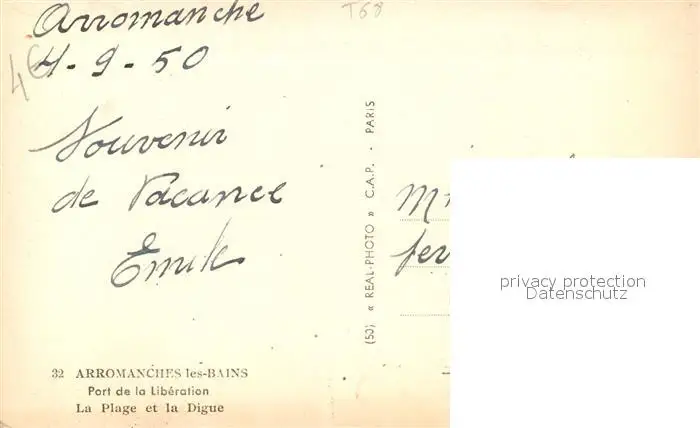 Arromanche
T68
4€
4-9-50
Souvenir
de Vacance
Emile
(50) « REAL-PHOTO » C.A.P. - PARIS
privacy protection
Datenschutz
32 ARROMANCHES les-BAINS
Port de la Libération
La Plage et la Digue